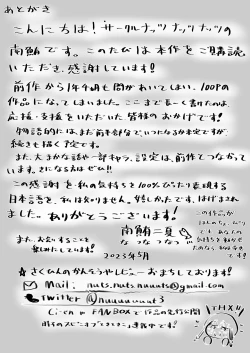 あとがき
こんにちは！サークルナッツナッツナッツの
南鮪です。このたびは本作をご購読
いただき、感謝しています！
前作から1年4ヶ月も間があいてしまい、100Pの
作品になってしまいました。ここまで長く書けたのは、
応援・支援をいただいた皆様のおかげです！
物語的には、まだ前半部なで、いつになるか未定ですが
続きも描く予定です。
また、大まかな話や一部キャラ、設定は、前作とつながって
います。きになる方はぜひ!!
この感謝を私の気持ちを100%ぴったり表現する
日本語を、私は知りません。野しかたです。はげまされ
ました。ありがとうございます！
この作品が
気持ちを
です！
南鮪二夏
なつなつなつ
また、お会いすることを
楽しみにしています！
2023年5月
☆さくひんのかんそうやレビューおまちしております！
Mail: nuts.nuts.nuuuts@gmail.com
Twitter @nuuuuuuut3
Ci-enやFANBOXで作品の先行公開
THX!!